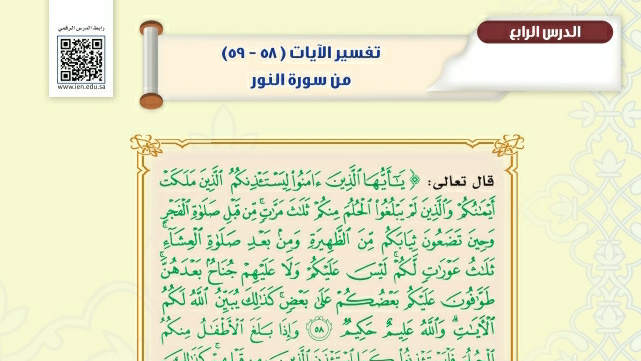 رابط الدرس الرقمي
www.ien.edu.sa
الدرس الرابع
تفسير الآيات ( ٥٨ - ٥٩)
من سورة النور
قال تعالى: ﴿ يَٰٓأَيُّهَا ٱلَّذِينَ ءَامَنُوا۟ لِيَسْتَـْٔذِنكُمُ ٱلَّذِينَ مَلَكَتْ
أَيْمَٰنُكُمْ وَٱلَّذِينَ لَمْ يَبْلُغُوا۟ ٱلْحُلُمَ مِنكُمْ ثَلَٰثَ مَرَّٰتٍۢ ۚ مِّن قَبْلِ صَلَوٰةِ ٱلْفَجْرِ
وَحِينَ تَضَعُونَ ثِيَابَكُم مِّنَ ٱلظَّهِيرَةِ وَمِنۢ بَعْدِ صَلَوٰةِ ٱلْعِشَآءِ ۚ
ثَلَٰثُ عَوْرَٰتٍۢ لَّكُمْ ۚ لَيْسَ عَلَيْكُمْ وَلَا عَلَيْهِمْ جُنَاحٌۢ بَعْدَهُنَّ ۚ
طَوَّٰفُونَ عَلَيْكُم بَعْضُكُمْ عَلَىٰ بَعْضٍۢ ۚ كَذَٰلِكَ يُبَيِّنُ ٱللَّهُ لَكُمُ
ٱلْـَٔايَٰتِ ۗ وَٱللَّهُ عَلِيمٌ حَكِيمٌۭ ٥٨ وَإِذَا بَلَغَ ٱلْأَطْفَٰلُ مِنكُمُ